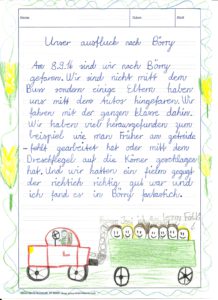 Unser ausflug nach Börry
Am 8.9.16 sind wir nach Börry
gefaren. Wir sind nicht mitt dem
Buss sondern einige Eltern haben
uns mitt dem Autos hingefaren. Wir
fahren mit der ganzen klasse dahin.
Wir haben viel herausgefunden zum
beispiel wie man früher am getreide
feld gearbeitet hat oder mitt dem
Dreschflegel auf die Körner geschlagen
hat. Und wir hatten ein film gegugt
der richtich richtig gut war und
ich fand es in Börry fantastich.